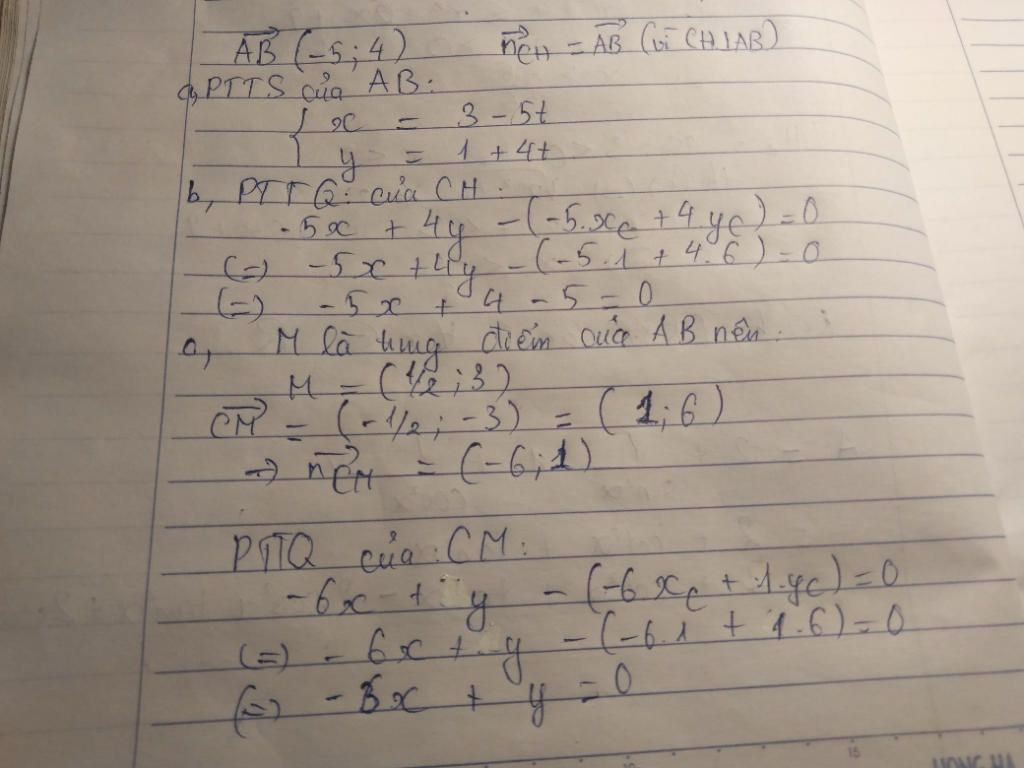 AB (-5; 4) nCH = AB (vì CH⊥AB)
a, PTTS của AB:
{ x = 3 - 5t
y = 1 + 4t
b, PTTQ: của CH:
-5x + 4y - (-5.xc + 4.yc) = 0
(=) -5x + 4y - (-5.1 + 4.6) = 0
(=) -5x + 4 - 5 = 0
M là trung điểm của AB nên:
M = (1/2; 3)
CM = (-1/2; -3) = (1; 6)
→ nCM = (-6; 1)
PTTQ của: CM:
-6x + y - (-6xc + 1.yc) = 0
(=) -6x + y - (-6.1 + 1.6) = 0
(=) x + y = 0